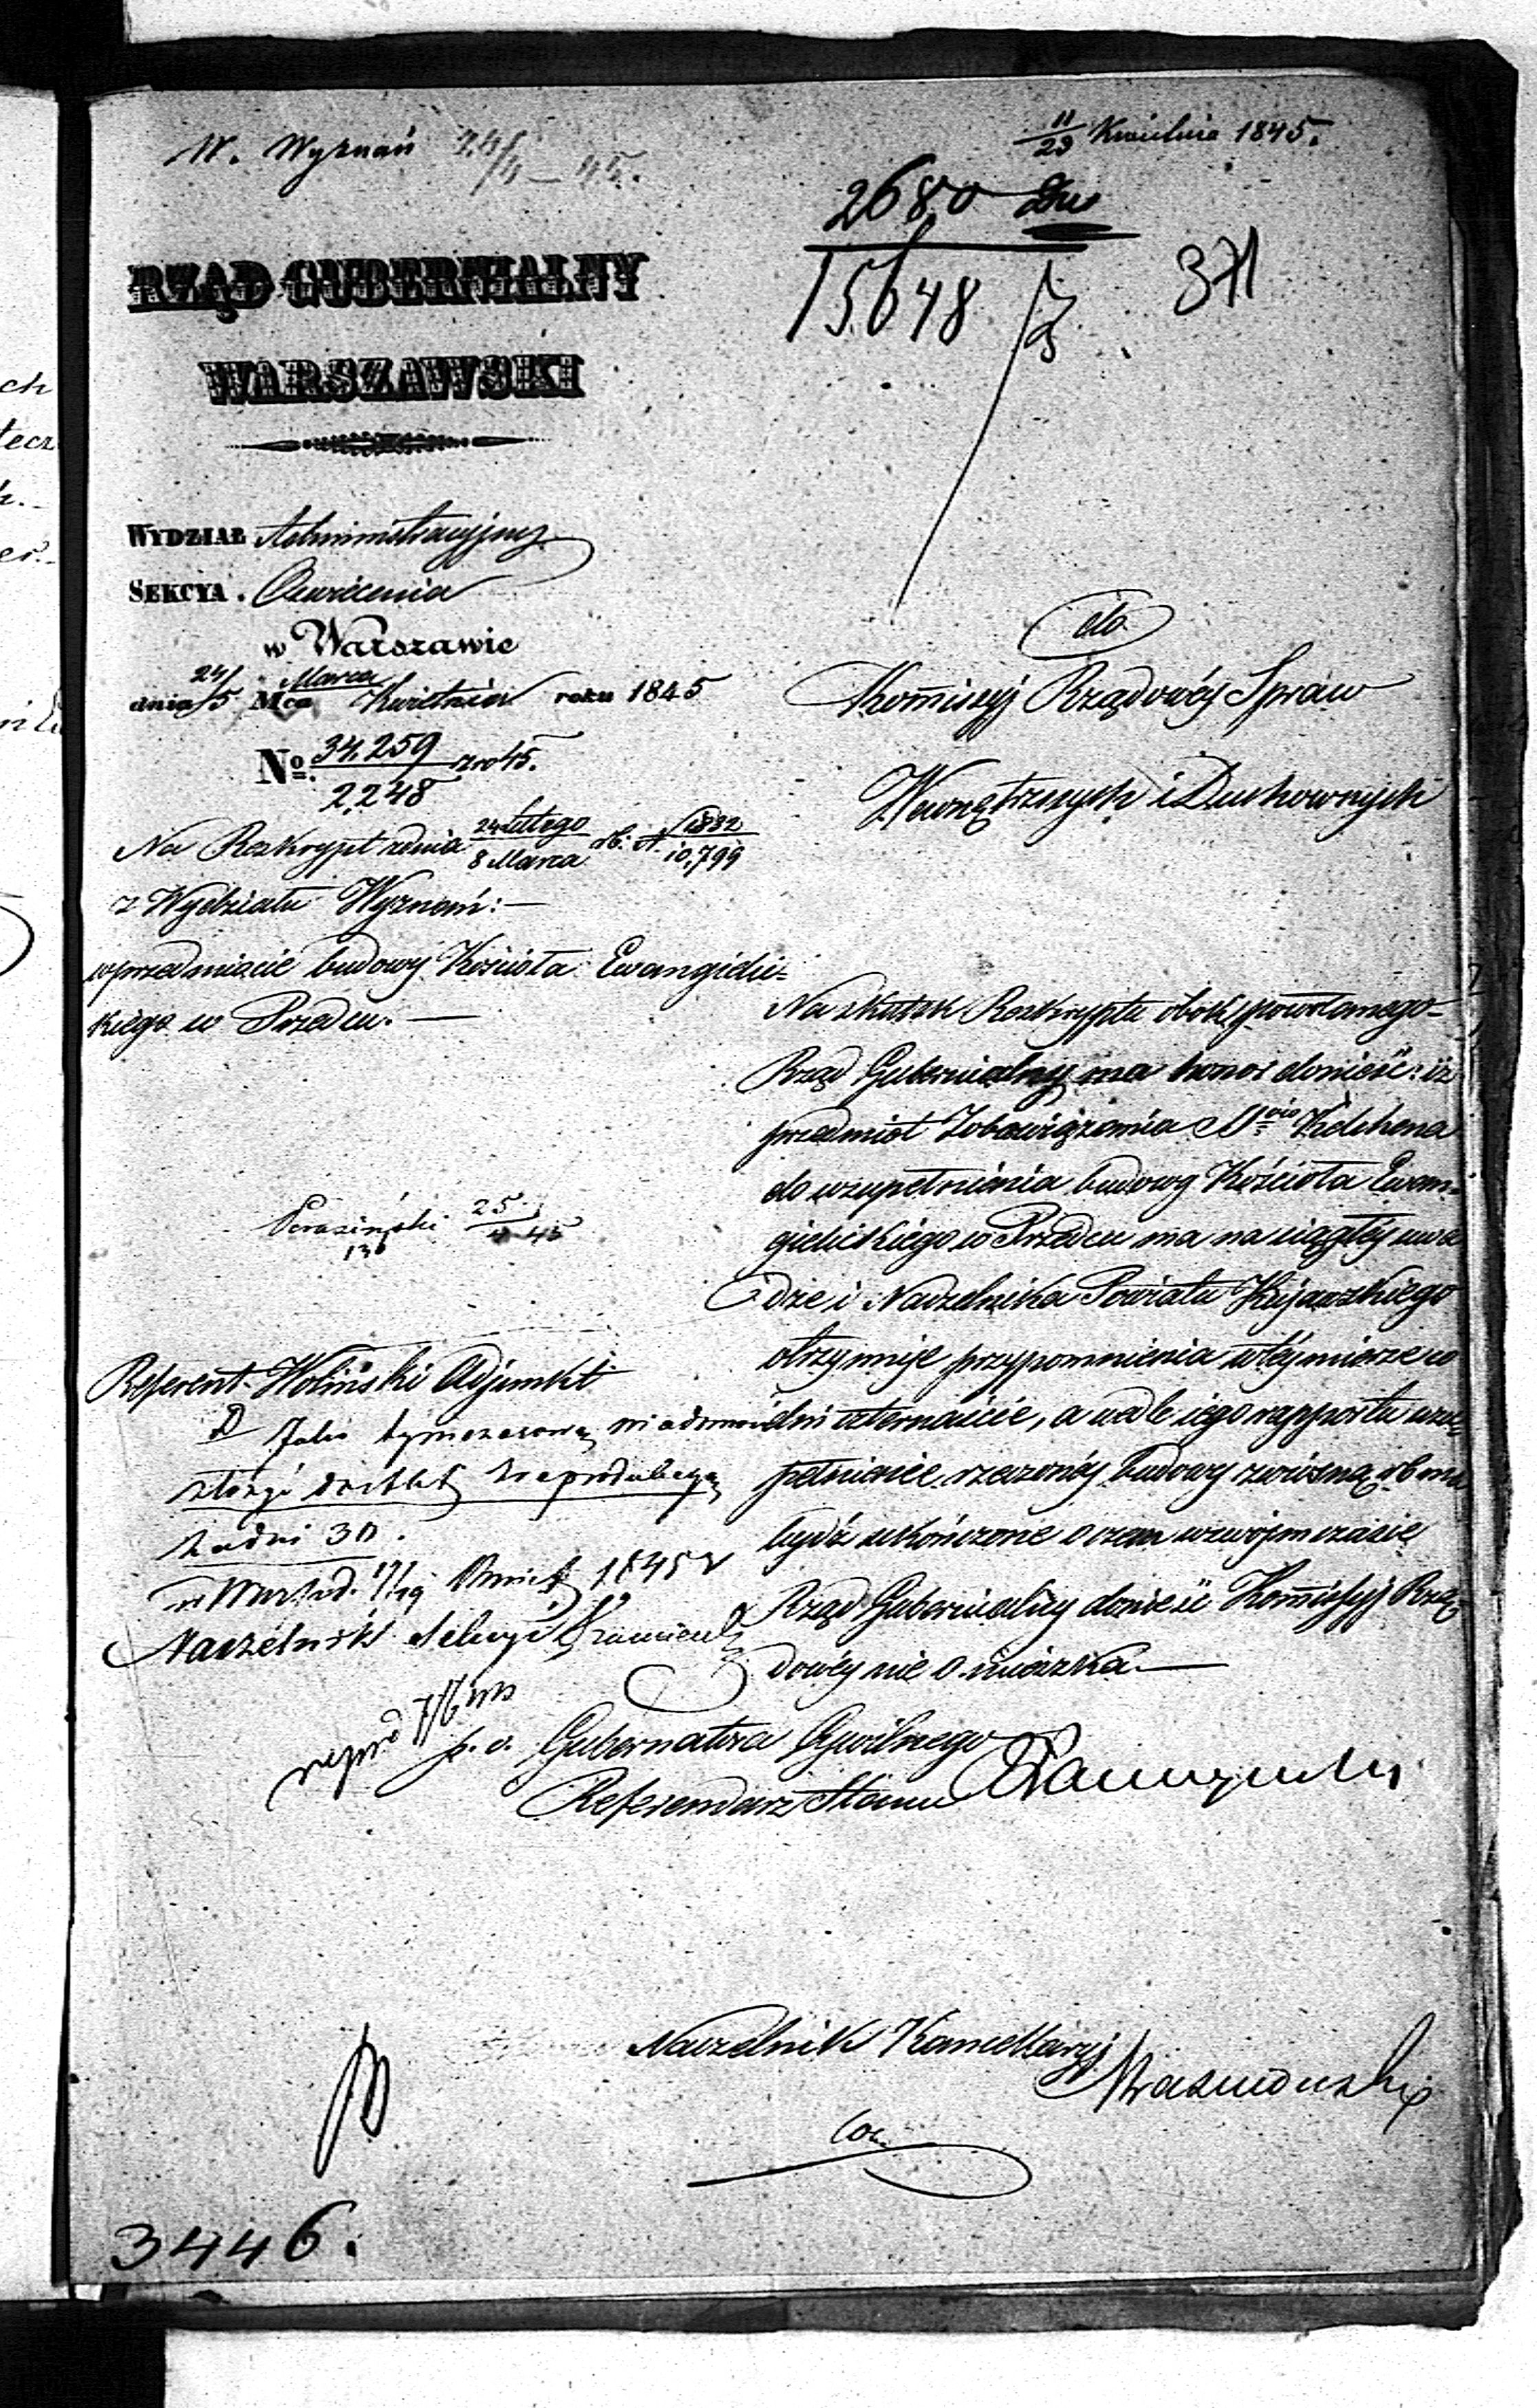 W. Wyznań 24/4 – 45.
11/23 Kwietnia 1845.
2680
15648
371
RZĄD GUBERNIALNY
WARSZAWSKI
WYDZIAŁ Administracyjny
SEKCYA. Oświecenia
w Warszawie
dnia 24/5 Mca Marca Kwietnia roku 1845
No. 34.259/2,248 z ro 45.
Na Reskrypt z dnia 24 Lutego/8 Marca r.b. N 1832/10,799
z Wydziału Wyznań:—
w przedmiocie budowy Kościoła Ewangielic-
kiego w Przedczu.—
do
Kommissyj Rządowéy Spraw
Wewnętrznych i Duchownych
Na skutek Reskryptu obok powołanego
Rząd Gubernialny ma honor donieść: iż
przedmiot Zobowiązania
do uzupełnienia budowy Kościoła Ewan-
gielickiego w Przedczu ma na ciągłéy uwa-
dze i Naczelnika Powiatu Kujawskiego
otrzymuje przypomnienia w téy mierze co
dni czternaście, a wedle jego rapportu uzu-
pełnienie rzeczonéy budowy z wiosną r.b. ma
bydź ukończone o czem w swojm czasie
Rząd Gubernialny donieść Kommissyj Rzą-
dowéy nie omieszka.—
25/4 45
136
Referent Woliński Adjunkt
Jako tymczasową wiadomość
złożyć do akt z reprodukcyą
za dni 30.
1845 r
Naczelnik Sekcyi
p. o. Gubernatora Cywilnego
Referendarz Stanu
Naczelnik Kancellaryj
3446.